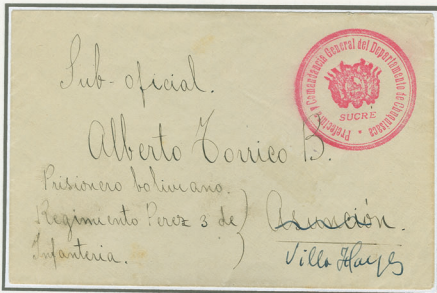 Sub-oficial.
Prefectura y Comandancia General del Departamento de Chuquisaca
SUCRE
Alberto Torrico B.
Prisionero boliviano.
Regimiento Perez 3 de
Infanteria.
Asunción.
Villa Hayes